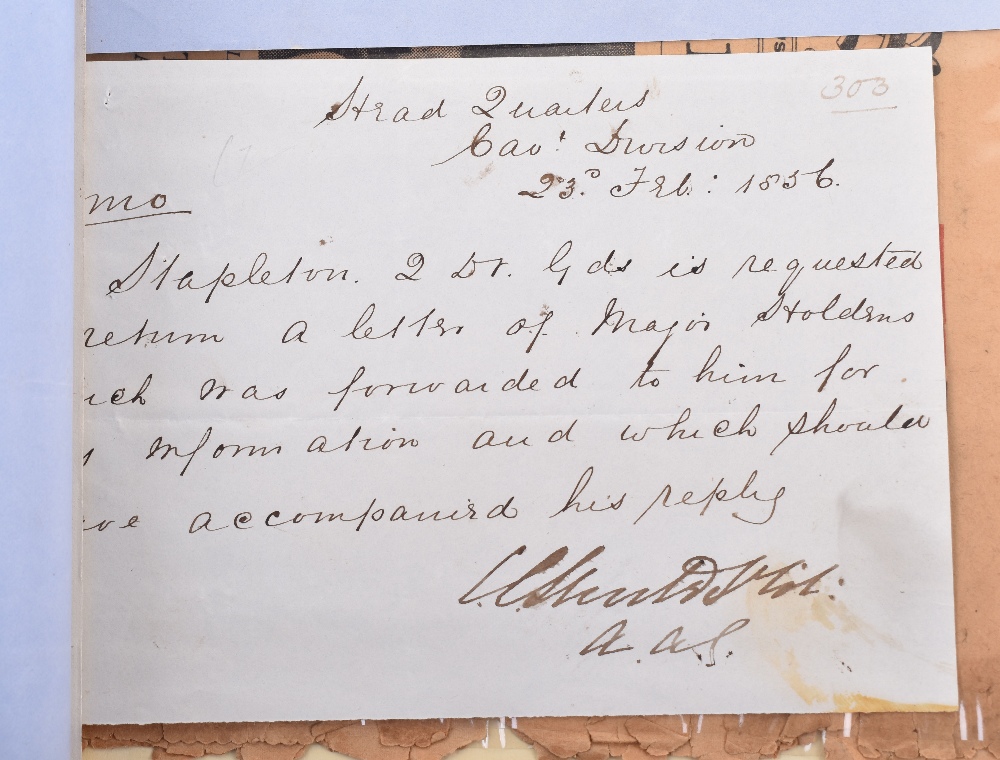 303
Head Quarters
Cavy. Division
23d. Feb: 1856.
mo
Stapleton. 2 Dr. Gds is requested
return a letter of Major Holdens
ich was forwarded to him for
s information and which should
ve accompanied his reply
Col.
A. A. G.